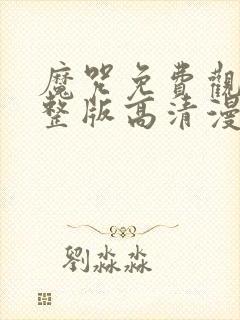 魔咒免費觀
整版高清漫
劉淼淼